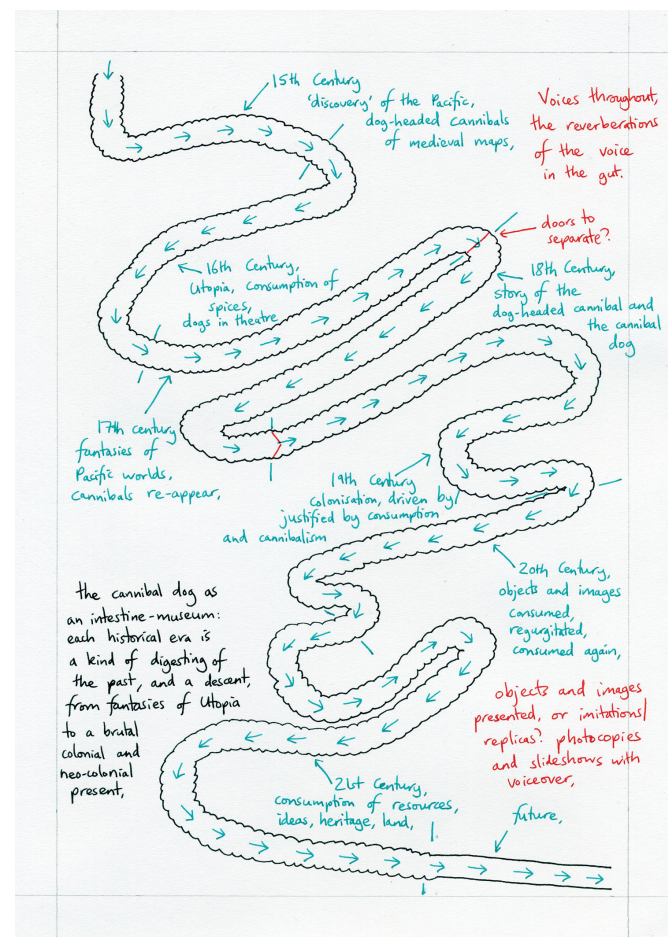 15th Century
'discovery' of the Pacific,
dog-headed cannibals
of medieval maps,
Voices throughout,
the reverberations
of the voice
in the gut.
doors to
separate?
16th Century,
Utopia, consumption of
spices,
dogs in theatre
18th Century,
story of the
dog-headed cannibal and
the cannibal
dog
17th century
fantasies of
Pacific worlds,
cannibals re-appear,
19th Century
colonisation, driven by/
justified by consumption
and cannibalism
20th Century,
objects and images
consumed,
regurgitated,
consumed again,
the cannibal dog as
an intestine-museum:
each historical era is
a kind of digesting of
the past, and a descent,
from fantasies of Utopia
to a brutal
colonial and
neo-colonial
present,
objects and images
presented, or imitations/
replicas? photocopies
and slideshows with
voiceover,
21st Century,
consumption of resources,
ideas, heritage, land,
future,